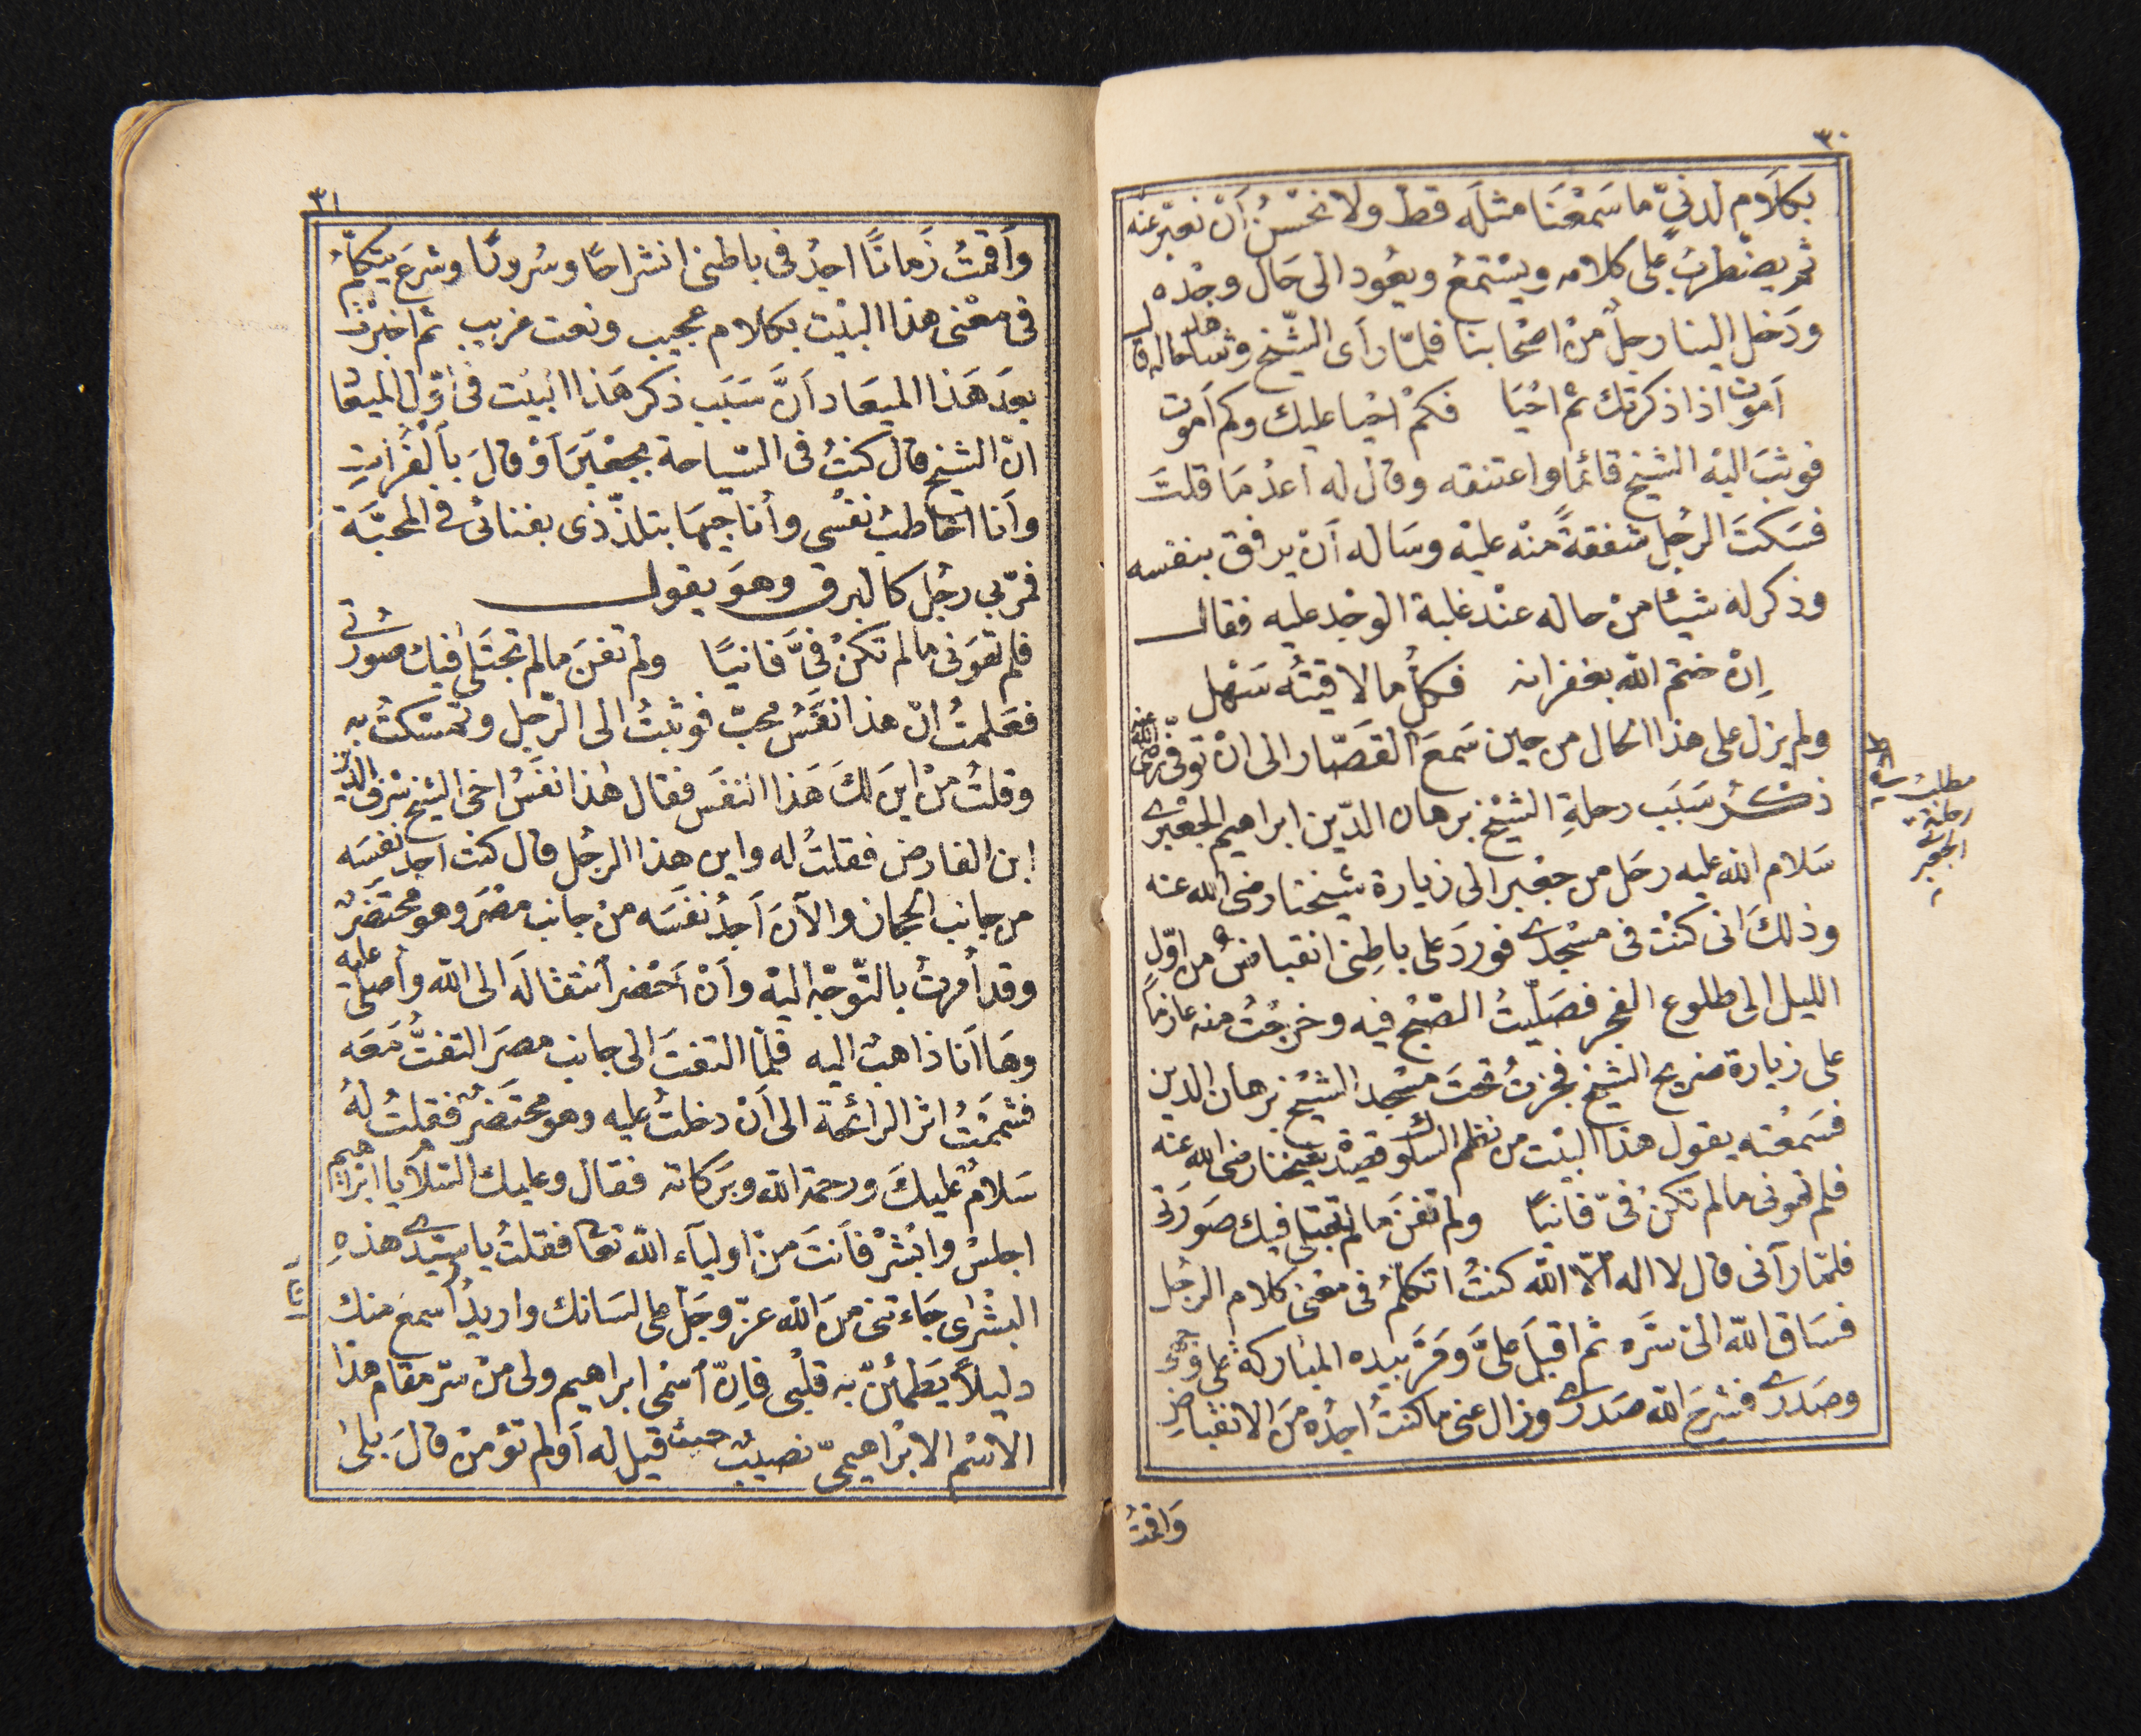 ٣٠
بكلام لدنيّ ما سَمعْنَا مثلَه قط ولا نحْسنُ أنْ نعبّر عنه
ثم يضْطربُ على كلامه ويسْتمعُ ويعُود الى حَال وجْده
ودَخل الينا رجلٌ منْ اصْحابنا فلمّا رآى الشّيخ وشاهد حاله قال
أموت اذا ذكرتك ثم احْيَا فكمْ احْيا عليك وكم أموت
فوثبَ اليْه الشيخ قائما واعتنقه وقال له اعدْ مَا قلتَ
فسَكتَ الرجُل شفقةً منْه عليْه وسَاله أنْ يرفق بنفسه
وذكر له شيئا منْ حاله عنْد غلبة الوجْد عليه فقال
اِنْ ختم الله بغفرانه فكلُّ ما لاقيتُه سَهْل
ولم يزل على هذا الحال من حين سَمعَ القصّار الى انْ توفّى رضى الله عنه
ذكْرُ سَبَب رحلةِ الشيْخ برهان الدّين ابراهيم الجعْبري
سَلام الله عليه رحَل من جعْبر الى زيارة شيخنا رضى الله عنه
وذلكَ انى كنْت فى مسْجدى فورَد على باطِنى انقباضٌ من اوّل
الليل الى طلوع الفجر فصَلّيْتُ الصّبْح فيه وخرجْتُ منه عازمًا
على زيارة ضريح الشيخ فجزتُ تحتَ مسْجد الشيْخ برهان الدين
فسَمعْته يقول هذا البيْت من نظم السلوك قصيدة شيخنا رضى الله عنه
فلم تهونى ما لم تكنْ فىّ فانيًا ولم تفنَ ما لم تجتلى فيك صَورتى
فلمّا رآنى قال لا اله الّا الله كنتُ اتكلّمُ فى معْنى كلام الرجُل
فسَاق الله الىّ سَرّه ثم اقبلَ علىَّ ومَرَّ بيده المباركة على فوادى
وصَدرى فشرحَ الله صَدرى وزال عنى ما كنتُ اجدُه منَ الانقباض
وَاقمتُ
مطلب
رحلة
الجعبرى
٣١
وأقمتُ زَمانًا اجدُ فى باطنى انشراحًا وسُرورًا وشرعَ يتكلّمُ
فى معْنى هذا البيْت بكلام عجيب ونعت غريب ثم اخبرْت
بعدَ هَذا الميعَاد اَنَّ سَبَب ذكر هَذا البيْت فى اوّل الميعا
انّ الشيخ قال كنتُ فى السّياحة بجعْبَرَ أوْ قالَ بالفُراتِ
وأنا اخاطبُ نفسى وأناجيهَا بتلذّذى بفنائى فى المحبّة
فمرّ بى رجُل كالبرق وهوَ يقول
فلم تهوَنى ما لم تكنْ فىَّ فانيًا ولم تفنَ ما لم تجتَلى فيك صُورتى
فعَلمتُ انّ هذا نفَسُ محبّ فوثبْتُ الى الرّجل وتمسّكتُ به
وقلتُ منْ اينَ لكَ هَذا النفَس فقال هذا نفَسُ اخى الشيخ شرف الدين
ابن الفارض فقلتُ له واين هذا الرجُل قال كنت اجدُ نفَسَه
من جانب الحجاز والآنَ أجدُ نفَسَه منْ جانب مصْرَ وهو محتَضَرٌ
وقد أُمرتُ بالتّوجّه اليْه وأنْ أحْضر انتقالَه الى الله وأصلى عليه
وهَا أنا ذاهبٌ اليه فلمّا التفتَ الى جانب مصرَ التفتُّ معَه
فشمَمْتُ اثر الرائحة الى أنْ دخلتُ عليه وهو محتَضرٌ فقلتُ لهُ
سَلامٌ عليكَ ورحمة الله وبركاته فقال وعليك السّلام يا ابراهيم
اجلسْ وابْشرْ فأنتَ منْ اولياء الله تعا فقلتُ يا سيّدى هذهِ
البشْرى جَاءتنى منَ الله عزّ وجَلّ على لسَانك واريدُ اسْمعَ منك
دليلًا يَطمئنّ به قلْبى فإنّ اسْمى ابراهيم ولى منْ سّر مقام هذا
الاسْم الابْراهيمىّ نصيبٌ حيث قيل له أولم تؤمنْ قالَ بلى